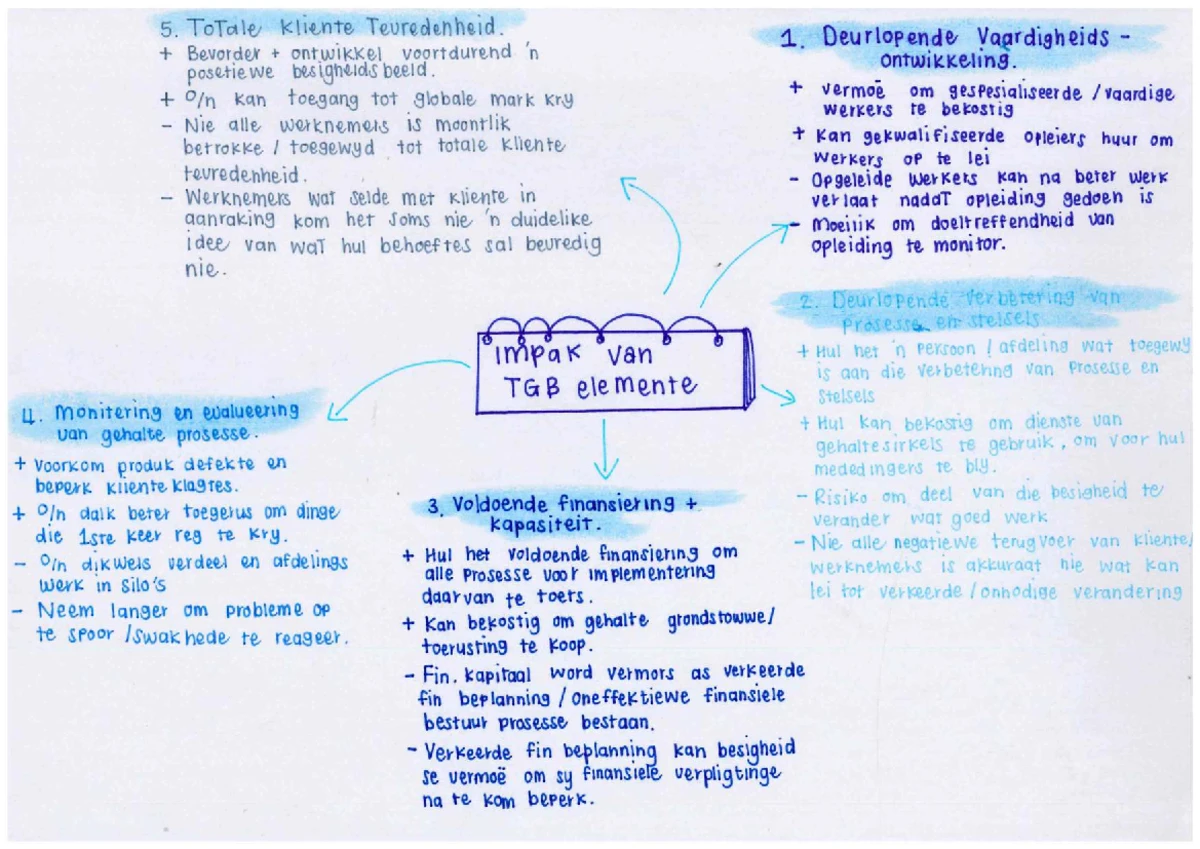 impak van
TGB elemente
1. Deurlopende Vaardigheids -
ontwikkeling.
+ vermoë om gespesialiseerde / vaardige
werkers te bekostig
+ Kan gekwalifiseerde opleiers huur om
werkers op te lei
- Opgeleide werkers kan na beter werk
verlaat nadat opleiding gedoen is
- Moeilik om doeltreffendheid van
opleiding te monitor.
2. Deurlopende verbetering van
prosesse en stelsels
+ Hul het 'n persoon / afdeling wat toegewy
is aan die verbetering van prosesse en
stelsels
+ Hul kan bekostig om dienste van
gehaltesirkels te gebruik, om voor hul
mededingers te bly.
- Risiko om deel van die besigheid te
verander wat goed werk
- Nie alle negatiewe terugvoer van kliente/
werknemers is akkuraat nie wat kan
lei tot verkeerde / onnodige verandering
3. Voldoende finansiering +
kapasiteit.
+ Hul het voldoende finansiering om
alle prosesse voor implementering
daarvan te toets.
+ Kan bekostig om gehalte grondstowwe/
toerusting te koop.
- Fin. kapitaal word vermors as verkeerde
fin beplanning / oneffektiewe finansiele
bestuur prosesse bestaan.
- Verkeerde fin beplanning kan besigheid
se vermoë om sy finansiele verpligtinge
na te kom beperk.
4. Monitering en evalueering
van gehalte prosesse.
+ Voorkom produk defekte en
beperk kliente klagtes.
+ O/n dalk beter toegerus om dinge
die 1ste keer reg te kry.
- O/n dikwels verdeel en afdelings
werk in silo's
- Neem langer om probleme op
te spoor / swakhede te reageer.
5. Totale kliente Tevredenheid.
+ Bevorder + ontwikkel voortdurend 'n
posetiewe besigheids beeld.
+ O/n kan toegang tot globale mark kry
- Nie alle werknemers is moontlik
betrokke / toegewyd tot totale kliente
tevredenheid.
- Werknemers wat selde met kliente in
aanraking kom het soms nie 'n duidelike
idee van wat hul behoeftes sal bevredig
nie.